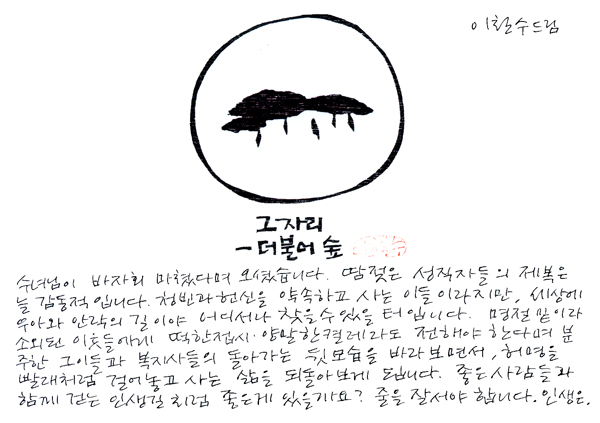 이철수드림
그 자리
- 더불어 숲
수녀님이 바자회 마쳤다며 오셨습니다. 땀젖은 성직자들의 제복은
늘 감동적입니다. 청빈과 헌신을 약속하고 사는 이들이라지만, 세상에
우아와 안락의 길이야 어디서나 찾을 수 있을 터입니다. 명절 밑이라
소외된 이웃들에게 떡한접시·양말한켤레라도 전해야 한다며 분
주한 그이들과 복지사들의 돌아가는 뒷모습을 바라보면서, 허명을
빨래처럼 걸어놓고 사는 삶을 되돌아보게 됩니다. 좋은 사람들과
함께 걷는 인생길처럼 좋은게 있을까요? 줄을 잘서야 합니다. 인생은.